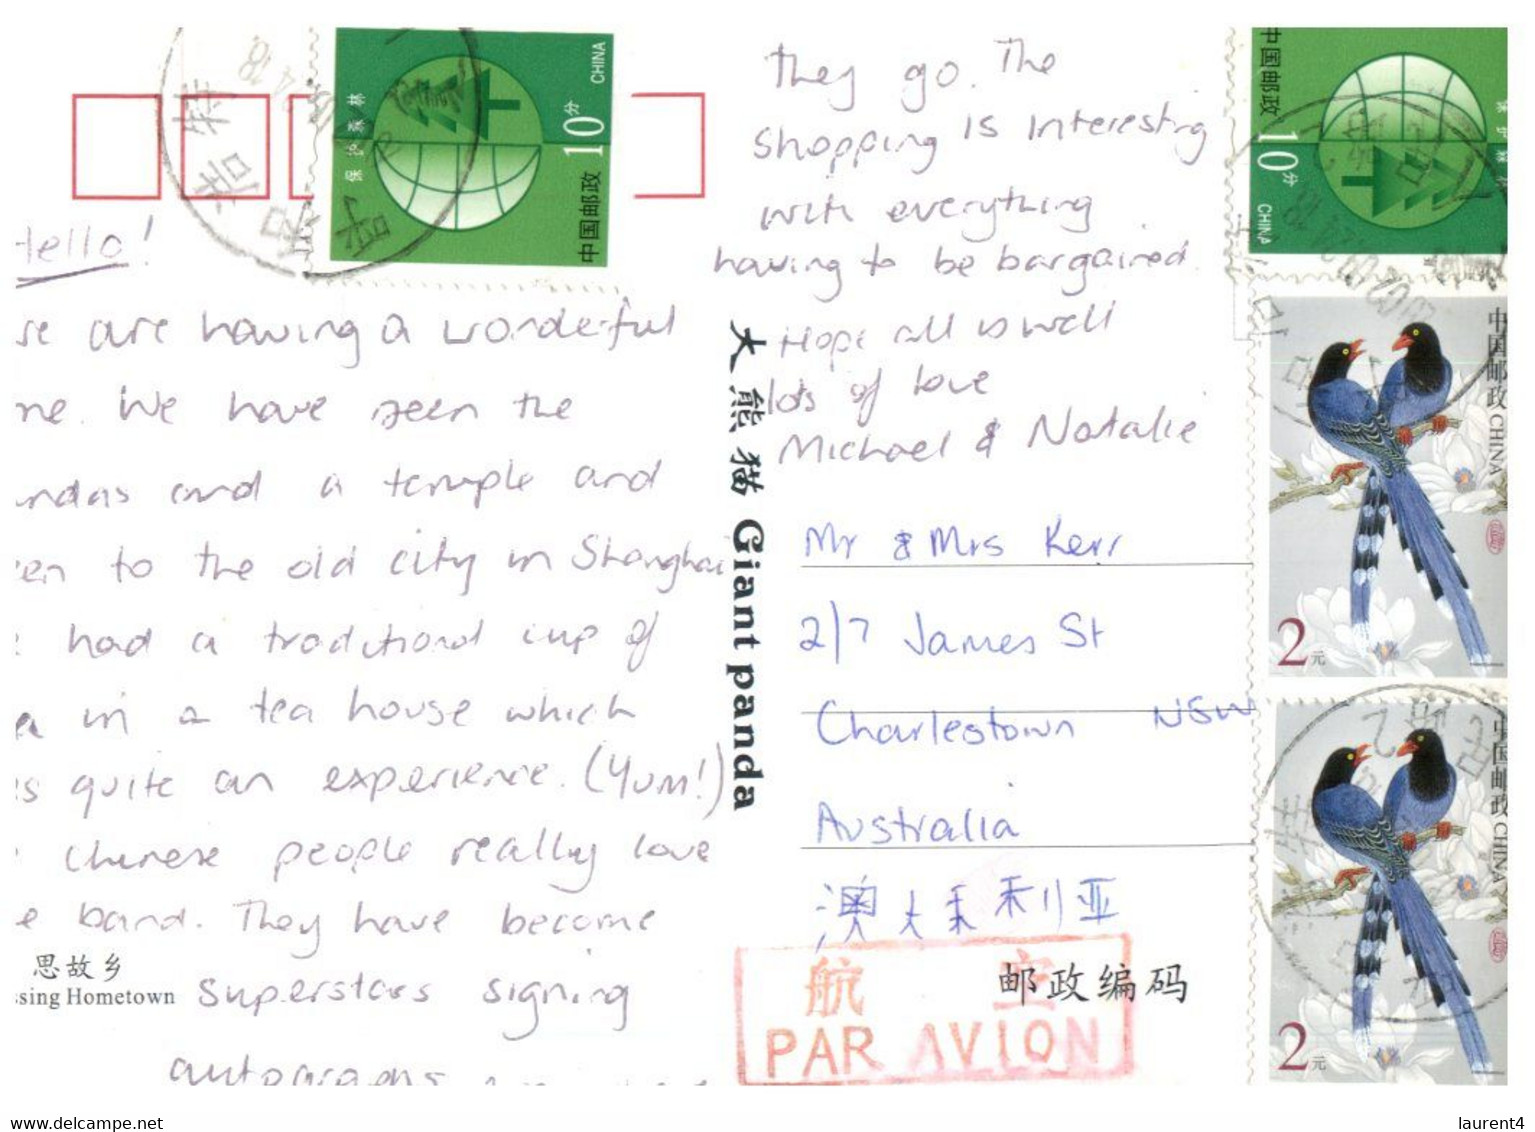 Hello!
are having a wonderful
We have seen the
and a temple and
to the old city in Shanghai
had a traditional cup of
in a tea house which
quite an experience. (Yum!)
Chinese people really love
band. They have become
superstars signing
autographs
思故乡
ssing Hometown
they go. The
shopping is interesting
with everything
having to be bargained.
Hope all is well
lots of love
Michael & Natalie
大熊猫 Giant panda
Mr & Mrs Kerr
2/7 James St
Charlestown NSW
Australia
澳大利亚
邮政编码
航空
PAR AVION
保护森林
中国邮政
10分
CHINA
中国邮政
10分
CHINA
中国邮政 CHINA
2元
中国邮政 CHINA
2元
delcampe.net
laurent4